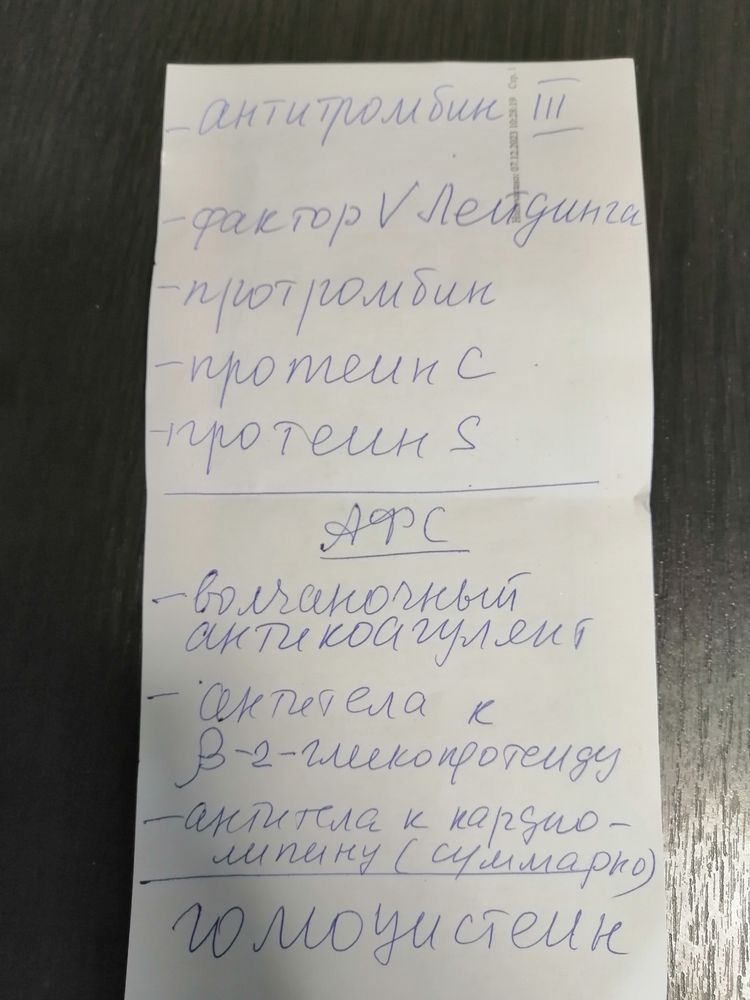 - антитромбин III
- фактор V Лейдинга
- протромбин
- протеин C
- протеин S
АФС
- волчаночный
антикоагулянт
- антитела к
β-2-гликопротеиду
- антитела к кардио-
липину (суммарно)
гомоцистеин
07.12.2023 10:28:19 Стр. 1